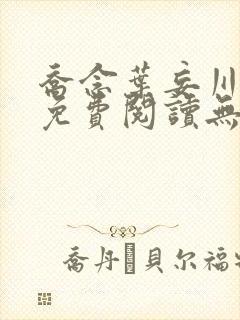 喬念葉妄川
免費閱讀無
喬丹·貝尔福特